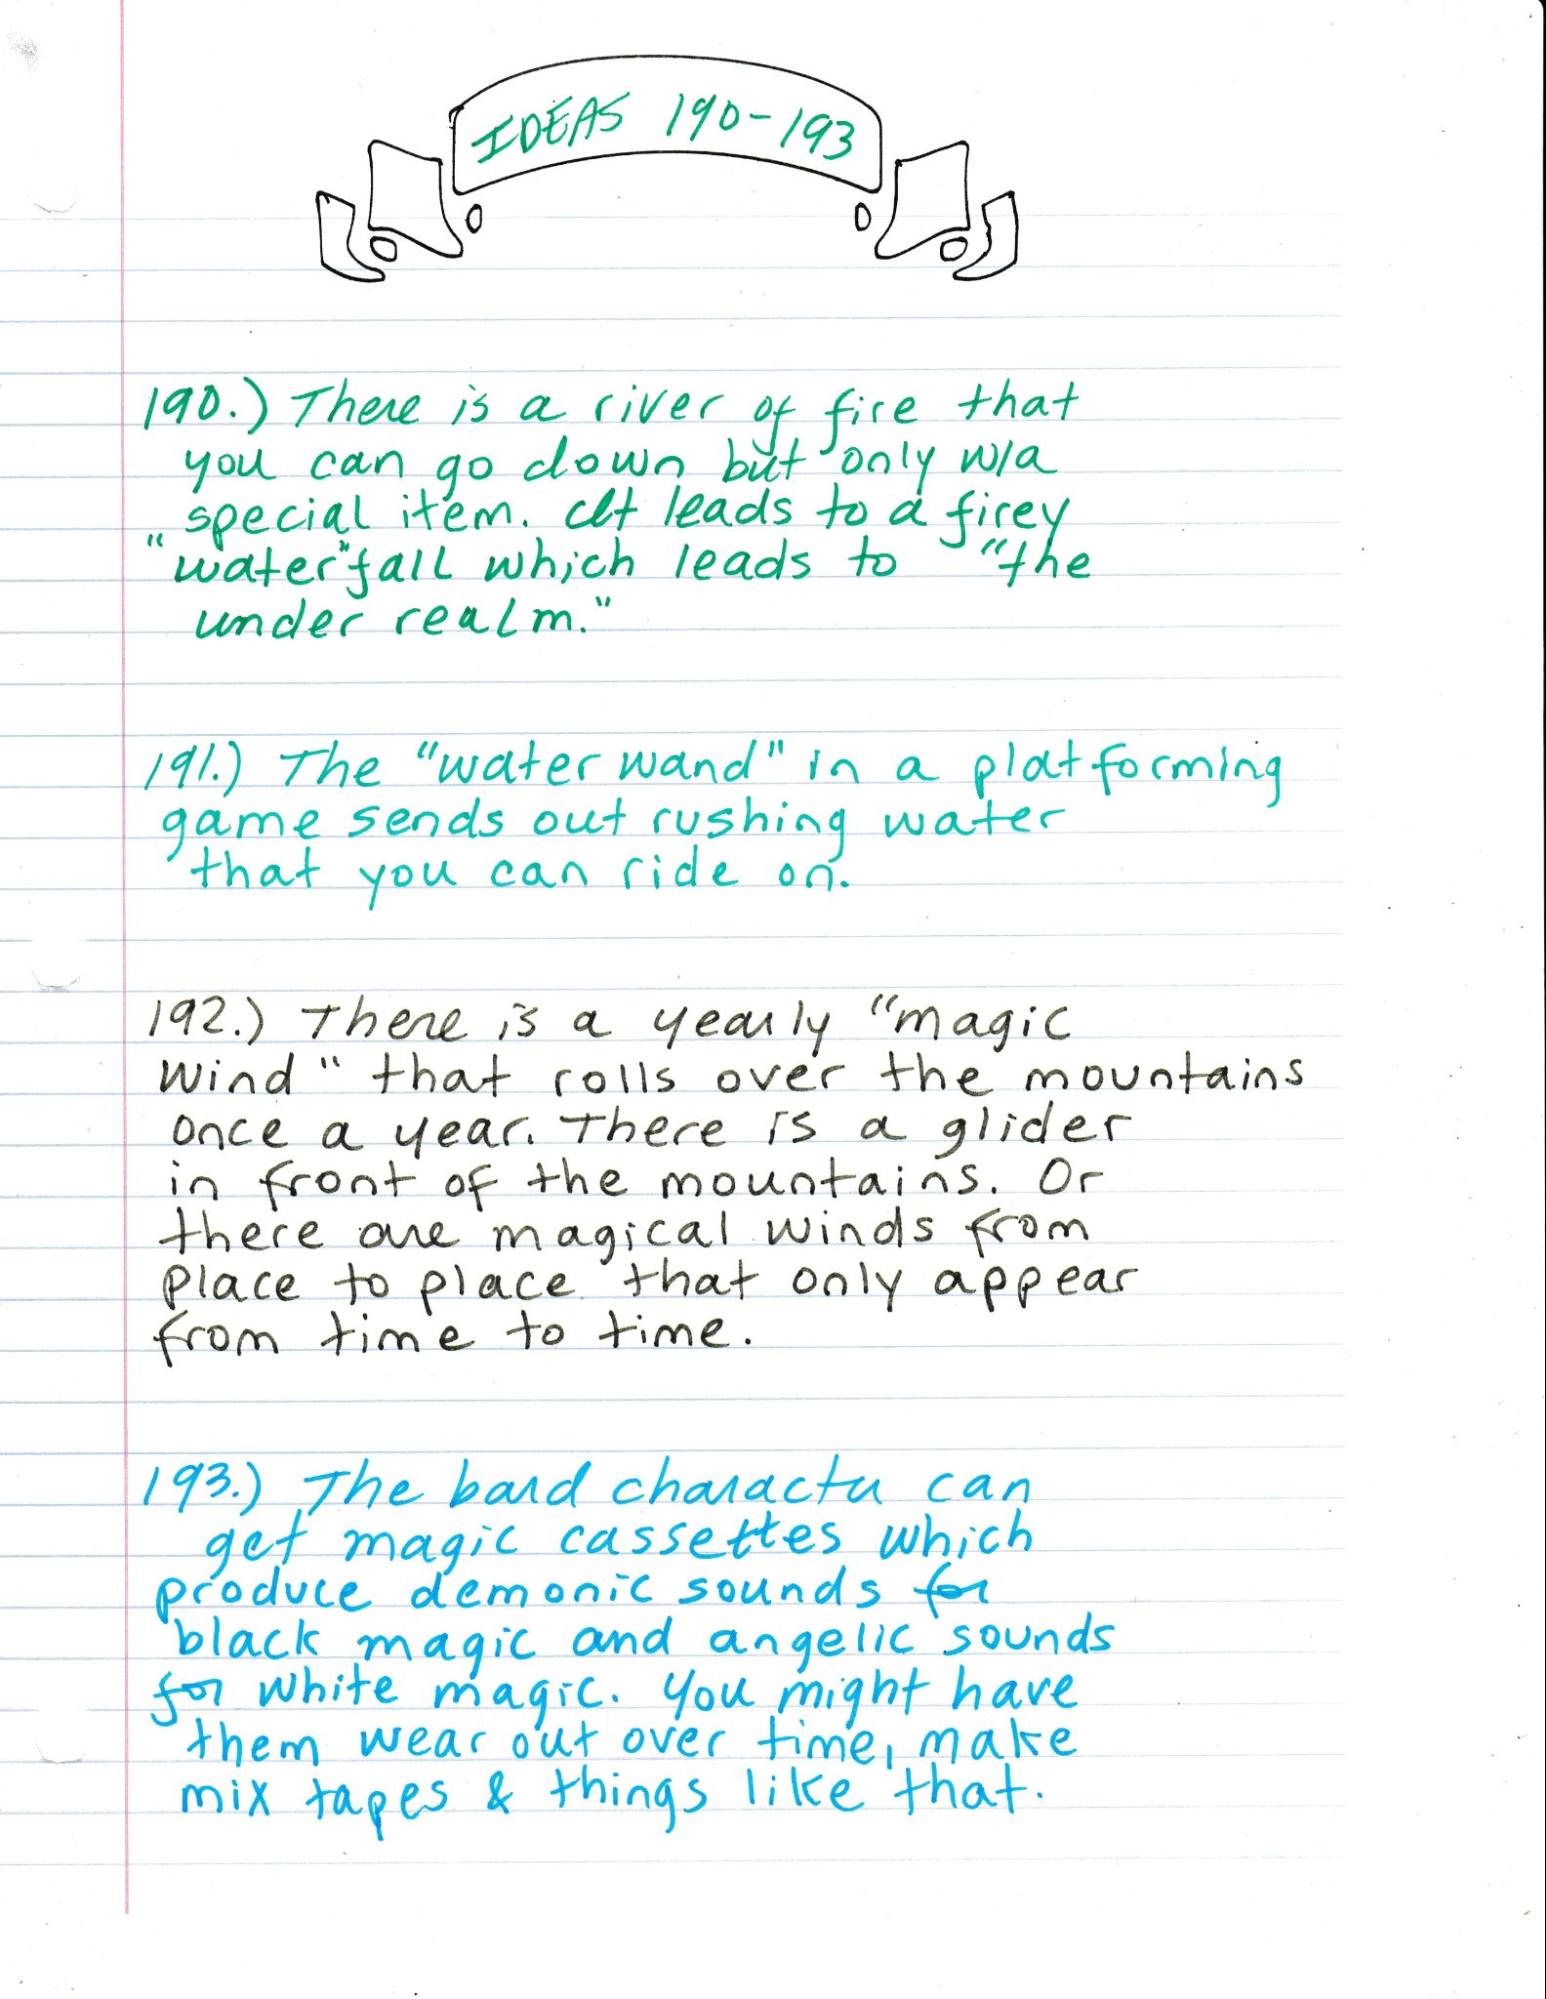 IDEAS 190-193
190.) There is a river of fire that
you can go down but only w/a
special item. It leads to a firey
"water"fall which leads to "the
under realm."
191.) The "water wand" in a platforming
game sends out rushing water
that you can ride on.
192.) There is a yearly "magic
wind" that rolls over the mountains
once a year. There is a glider
in front of the mountains. Or
there are magical winds from
place to place that only appear
from time to time.
193.) The bard character can
get magic cassettes which
produce demonic sounds for
black magic and angelic sounds
for white magic. You might have
them wear out over time, make
mix tapes & things like that.